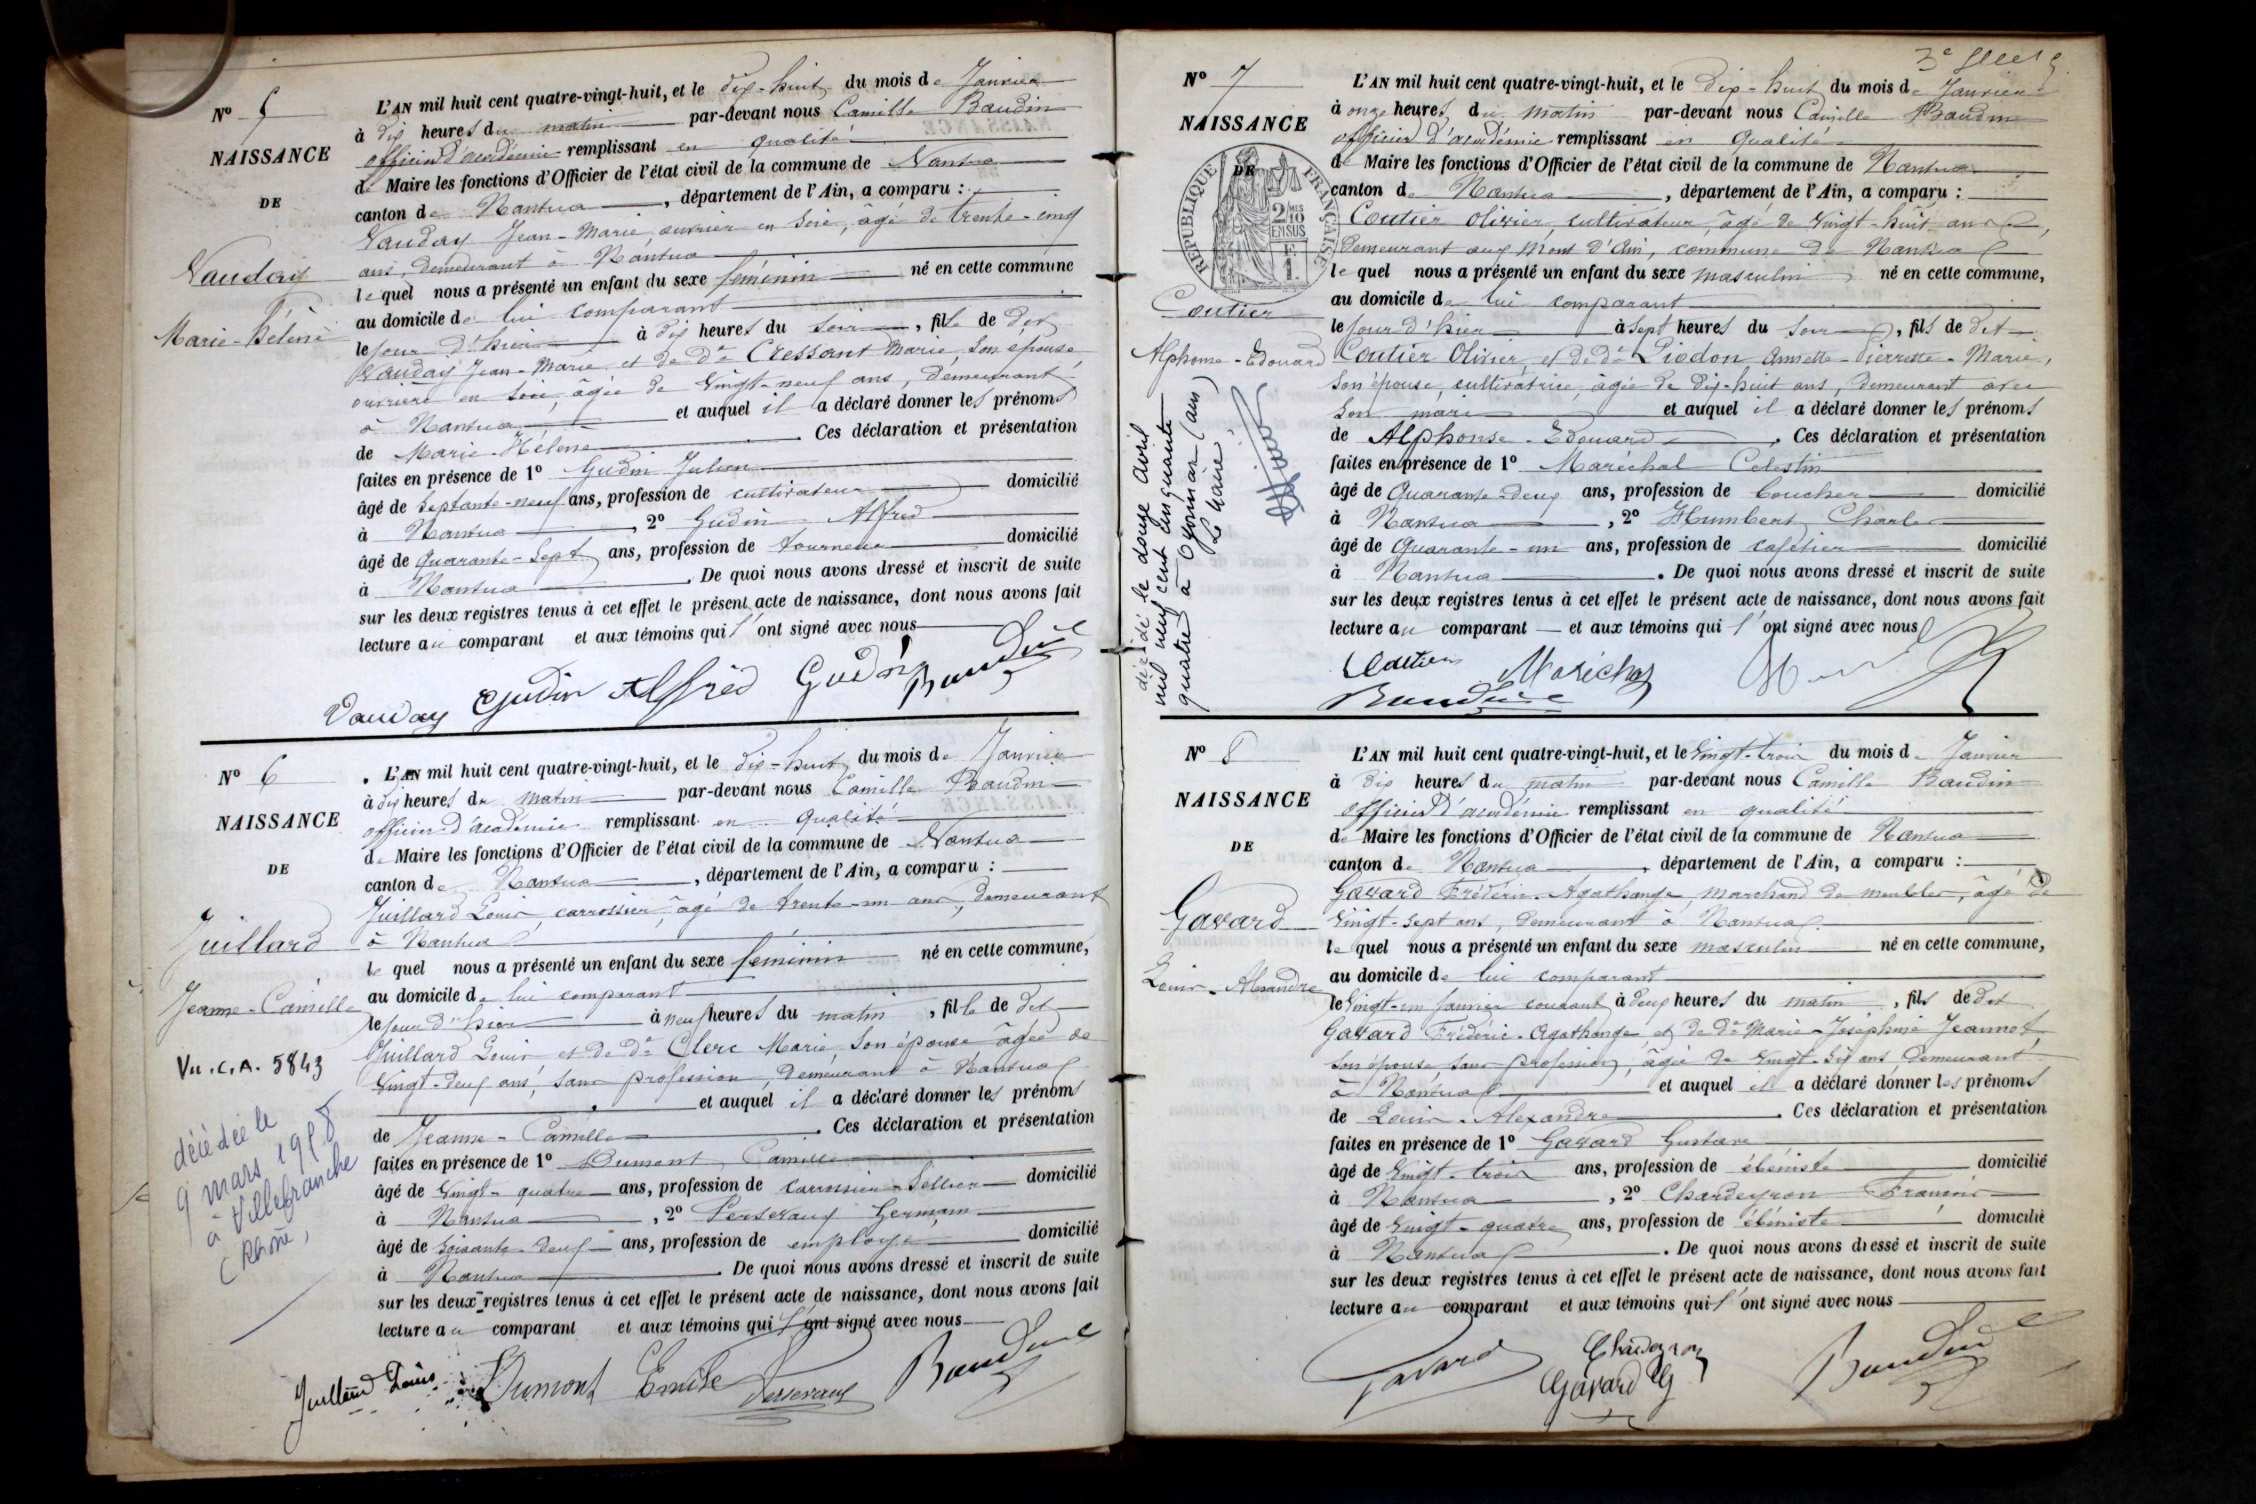 Nº 5
NAISSANCE
DE
Vauday
Marie-Hélène
L'AN mil huit cent quatre-vingt-huit, et le dix-huit du mois de Janvier
à dix heures du matin par-devant nous Camille Baudin
officier d'académie remplissant en qualité
de Maire les fonctions d'Officier de l'état civil de la commune de Nantua
canton de Nantua, département de l'Ain, a comparu :
Vauday Jean-Marie, ouvrier en soie, âgé de trente-cinq
ans, demeurant à Nantua
lequel nous a présenté un enfant du sexe féminin né en cette commune
au domicile de lui comparant
le jour d'hier à dix heures du soir, fille de dit
Vauday Jean-Marie et de de Cressant Marie, son épouse,
ouvrière en soie, âgée de vingt-neuf ans, demeurant
à Nantua et auquel il a déclaré donner les prénoms
de Marie-Hélène. Ces déclaration et présentation
faites en présence de 1º Gudin Julien
âgé de septante-neuf ans, profession de cultivateur domicilié
à Nantua, 2º Gudin Alfred
âgé de quarante-sept ans, profession de tourneur domicilié
à Nantua. De quoi nous avons dressé et inscrit de suite
sur les deux registres tenus à cet effet le présent acte de naissance, dont nous avons fait
lecture au comparant et aux témoins qui l'ont signé avec nous
Vauday Gudin Alfred Gudin Baudin
Nº 6
NAISSANCE
DE
Juillard
Jeanne-Camille
Vu. C.A. 5843
décèdée le
9 mars 1958
à Villefranche
(Rhône)
L'AN mil huit cent quatre-vingt-huit, et le dix-huit du mois de Janvier
à dix heures du matin par-devant nous Camille Baudin
officier d'académie remplissant en qualité
de Maire les fonctions d'Officier de l'état civil de la commune de Nantua
canton de Nantua, département de l'Ain, a comparu :
Juillard Louis, carrossier, âgé de trente-un ans, demeurant
à Nantua
lequel nous a présenté un enfant du sexe féminin né en cette commune,
au domicile de lui comparant
le jour d'hier à neuf heures du matin, fille de dit
Juillard Louis et de de Clerc Marie, son épouse âgée de
vingt-deux ans, sans profession, demeurant à Nantua
et auquel il a déclaré donner les prénoms
de Jeanne-Camille. Ces déclaration et présentation
faites en présence de 1º Dumont
âgé de vingt-quatre ans, profession de carrossier-sellier domicilié
à Nantua, 2º Perseraux Germain
âgé de soixante-deux ans, profession de employé domicilié
à Nantua. De quoi nous avons dressé et inscrit de suite
sur les deux registres tenus à cet effet le présent acte de naissance, dont nous avons fait
lecture au comparant et aux témoins qui l'ont signé avec nous
Juillard Louis Dumont Emile Baudin
3e
Nº 7
NAISSANCE
DE
RÉPUBLIQUE FRANÇAISE
2/10 EN SUS
1 F.
Coutier
Alphonse-Edouard
décédé le douze avril
mil neuf cent cinquante
quatre à Oyonnax (Ain)
Le Maire
L'AN mil huit cent quatre-vingt-huit, et le dix-huit du mois de Janvier
à onze heures du matin par-devant nous Camille Baudin
officier d'académie remplissant en qualité
de Maire les fonctions d'Officier de l'état civil de la commune de Nantua
canton de Nantua, département de l'Ain, a comparu :
Coutier Olivier, cultivateur, âgé de vingt-huit ans,
demeurant aux Mont d'Ain, commune de Nantua
lequel nous a présenté un enfant du sexe masculin né en cette commune,
au domicile de lui comparant
le jour d'hier à sept heures du soir, fils de dit
Coutier Olivier et de de Piodon Annette-Pierrette-Marie,
son épouse, cultivatrice, âgée de dix-huit ans, demeurant avec
son mari et auquel il a déclaré donner les prénoms
de Alphonse-Edouard. Ces déclaration et présentation
faites en présence de 1º Maréchal Celestin
âgé de quarante-deux ans, profession de boucher domicilié
à Nantua, 2º Humbert Charles
âgé de quarante-un ans, profession de cafetier domicilié
à Nantua. De quoi nous avons dressé et inscrit de suite
sur les deux registres tenus à cet effet le présent acte de naissance, dont nous avons fait
lecture au comparant et aux témoins qui l'ont signé avec nous
Coutier Maréchal
Baudin
Nº 8
NAISSANCE
DE
Gavard
Louis-Alexandre
L'AN mil huit cent quatre-vingt-huit, et le vingt-trois du mois de Janvier
à dix heures du matin par-devant nous Camille Baudin
officier d'académie remplissant en qualité
de Maire les fonctions d'Officier de l'état civil de la commune de Nantua
canton de Nantua, département de l'Ain, a comparu :
Gavard Frédéric-Agathange, marchand de meubles, âgé de
vingt-sept ans, demeurant à Nantua
lequel nous a présenté un enfant du sexe masculin né en cette commune,
au domicile de lui comparant
le vingt-un janvier courant à deux heures du matin, fils de dit
Gavard Frédéric-Agathange et de de Marie-Joséphine Jeannet
son épouse, sans profession, âgée de vingt-six ans demeurant
à Nantua et auquel il a déclaré donner les prénoms
de Louis-Alexandre. Ces déclaration et présentation
faites en présence de 1º Gavard Gustave
âgé de vingt-trois ans, profession de ébéniste domicilié
à Nantua, 2º Chardeyron François
âgé de vingt-quatre ans, profession de ébéniste domicilié
à Nantua. De quoi nous avons dressé et inscrit de suite
sur les deux registres tenus à cet effet le présent acte de naissance, dont nous avons fait
lecture au comparant et aux témoins qui l'ont signé avec nous
Gavard Chardeyron Baudin
Gavard G